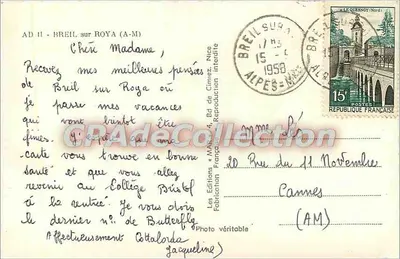 AD 11 - BREIL sur ROYA (A-M)
Chère Madame,
Recevez mes meilleures pensées
de Breil sur Roya où
je passe mes vacances
qui vont bientôt être
finies. que ma
carte vous trouve en bonne
santé et que vous allez
revenir au Collège Bristol
à la rentrée. Je vous dois
le dernier n° de Butterfly
Affectueusement Cottalorda
Jacqueline)
Les Editions
Bd de Cimiez, Nice
Reproduction interdite
Photo véritable
BREIL SUR
15 -
1958
ALPES-Mmes
LE QUESNOY (Nord)
15F
POSTES
REPUBLIQUE FRANÇAISE
CPAdeCollection
Mme
20 Rue du 11 Novembre
Cannes
(AM)